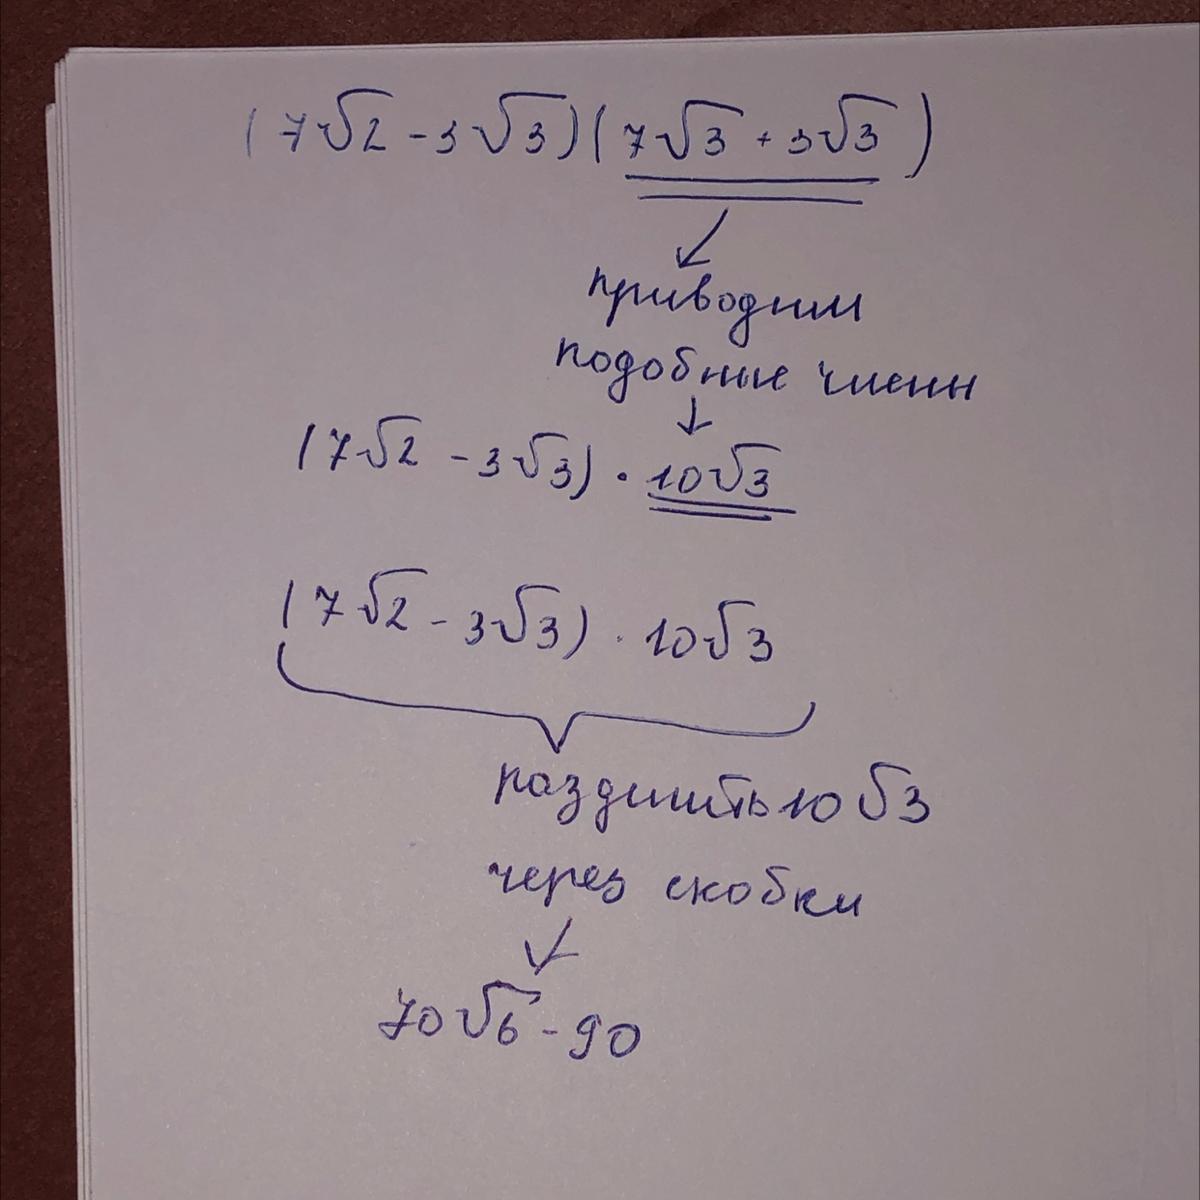 (7√2 - 3√3)(7√3 + 3√3)
приводим
подобные члены
(7√2 - 3√3) · 10√3
(7√2 - 3√3) · 10√3
раздилить 10√3
через скобки
70√6 - 90